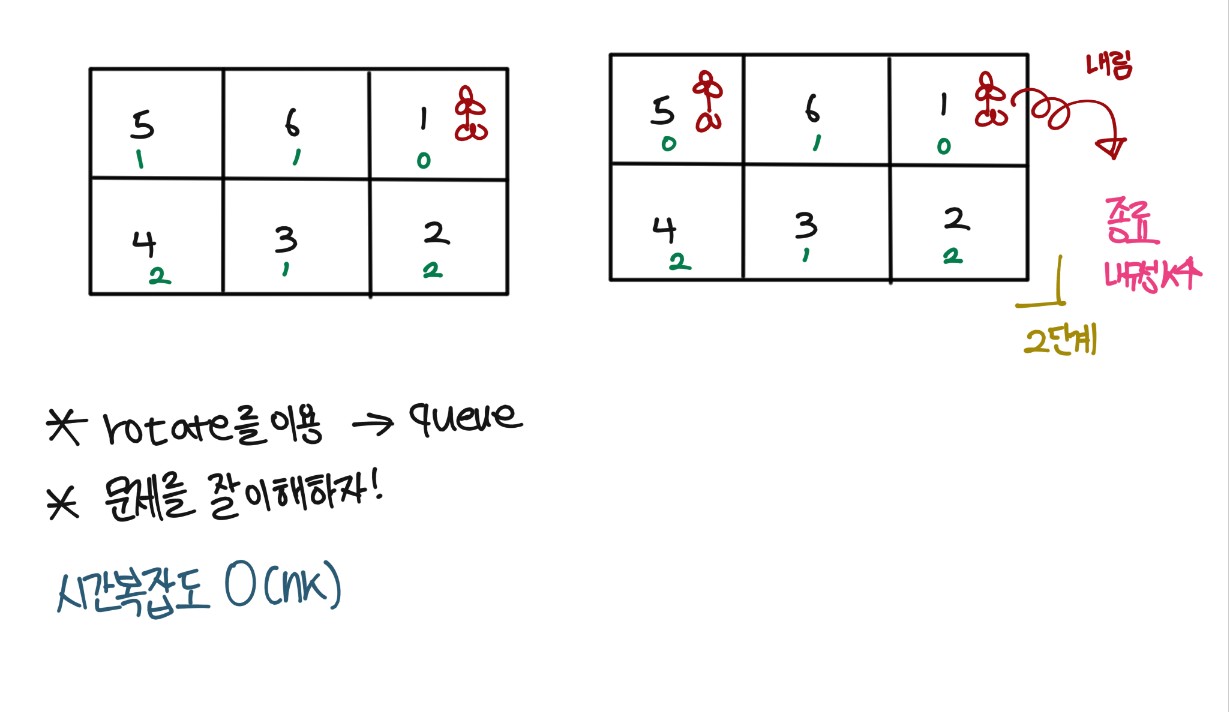 5 6 1
1 1 0
4 3 2
2 1 2
5 6 1
0 1 0
4 3 2
2 1 2
내림
종료
내구성 k수
2단계
* rotate를 이용 → queue
* 문제를 잘 이해하자!
시간복잡도 O(nk)